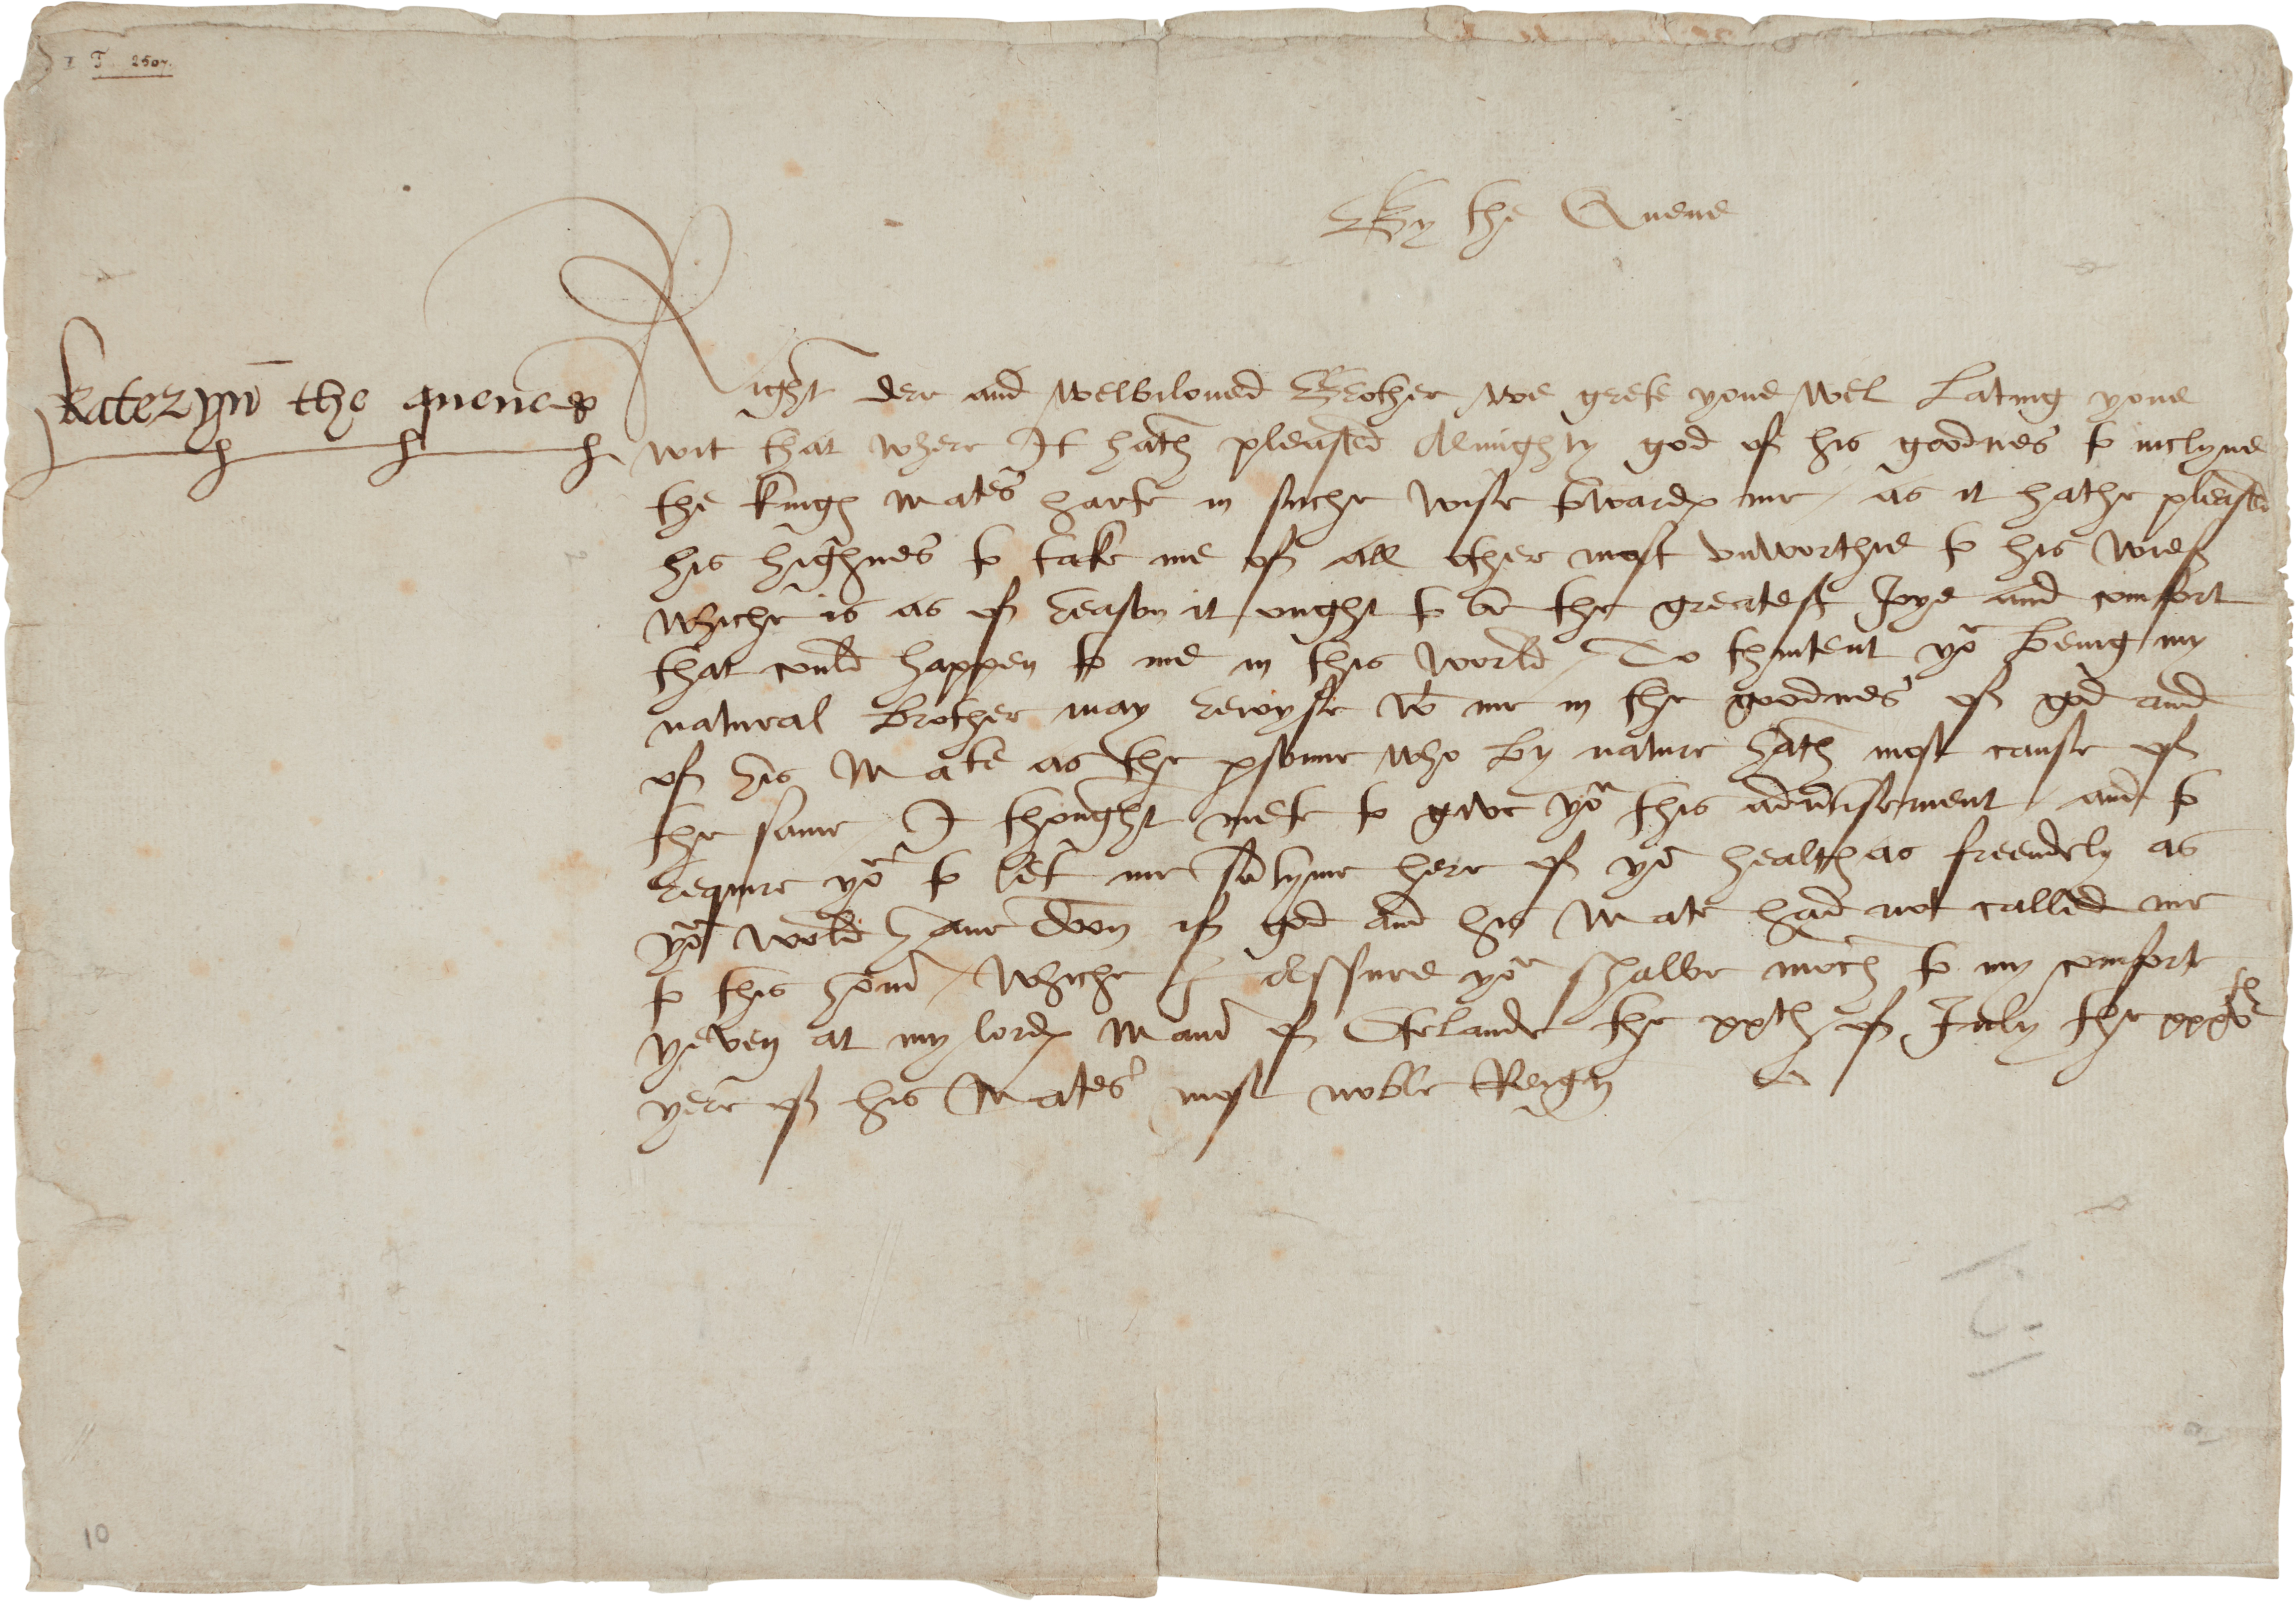 T 2507.
By the Quene
Kateryn the quene KP
Right dere and welbiloved Brother we grete youe wel Lating youe
wit that where It hath pleased Almighty god of his goodnes to inclyne
the kings mates harte in suche wise towards me as it hathe pleased
his highnes to take me of all other most unworthie to his wief
whiche is as of reason it ought to be the greatest Joye and comfort
that could happen to me in this world / To thintent yor being my
natural brother may rejoyse wt me in the goodnes of god and
of his Mate as the psonne who by nature hath most cause of
the same / I thought mete to give yor this advtisement / and to
require yor to let me sōtyme here of yor health as freendely as
yor wold have doon if god and his Mate had not called me
to this honr / whiche I assure yor shalbe moch to my comforte
yeven at my lords Manr of Otelande the xxth of July the xxxvth
yere of his Mates most noble Reign
10